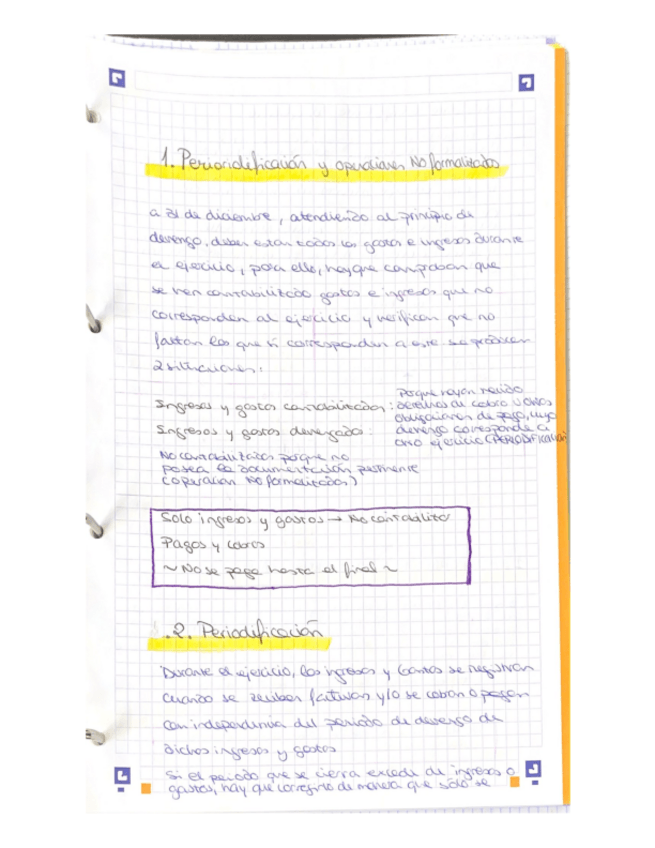 1. Perioridificación y operaciones No formalizadas
a 31 de diciembre, atendiendo al principio de
devengo, deben estar todos los gastos e ingresos durante
el ejercicio, para ello, hay que comprobar que
se han contabilizado gastos e ingresos que no
corresponden al ejercicio y verificar que no
faltan los que si corresponden a este se producen
2 situaciones:
Ingresos y gastos contabilizados: porque hayan nacido
derechos de cobro u otras
obligaciones de pago, cuyo
devengo corresponde a
otro ejercicio (PERIODIFICACIÓN)
Ingresos y gastos devengado:
No contabilizados porque no
posea la documentación pertinente
(operación No formalizadas)
Solo ingresos y gastos → No contabilizo
Pagos y cobros
~ No se paga hasta el final ~
.2. Periodificación
Durante el ejercicio, los ingresos y gastos se registran
cuando se reciben facturas y/o se cobran o pagan
con independencia del periodo de devengo de
dichos ingresos y gastos
Si el periodo que se cierra excede de ingresos o
gastos, hay que corregirlo de manera que sólo se